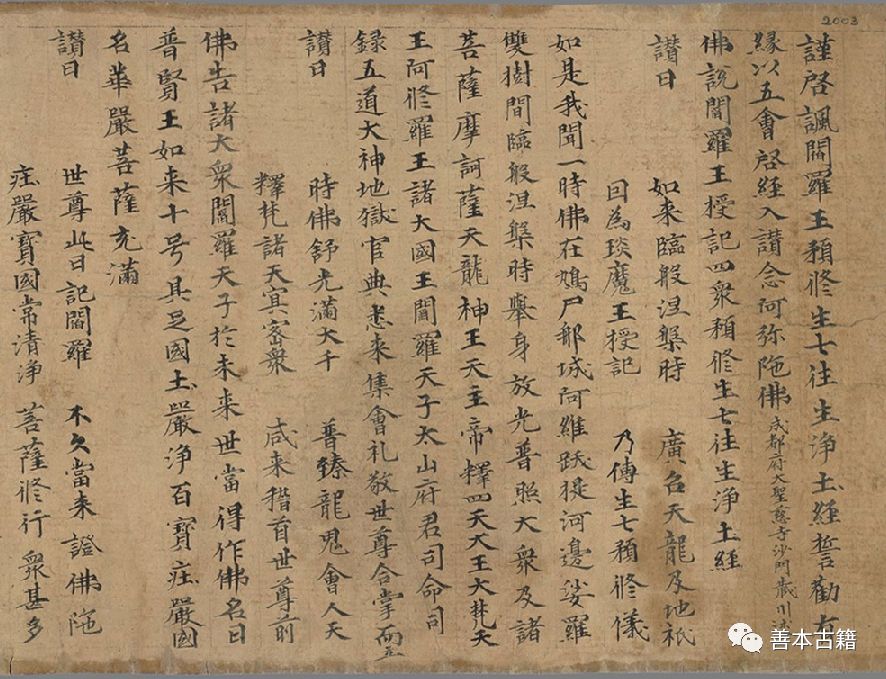 2003
謹啓諷閻羅王預修生七往生淨土經誓勸有
緣以五會啓經入讃念阿弥陁佛 成都府大聖慈寺沙門藏川述
佛說閻羅王授記四衆預修生七往生淨土經
讃曰 如来臨般涅槃時 廣召天龍及地祇
因為琰魔王授記 乃傳生七預修儀
如是我聞一時佛在鳩尸那城阿維跋提河邊娑羅
雙樹間臨般涅槃時舉身放光普照大衆及諸
菩薩摩訶薩天龍神王天主帝釋四天大王大梵天
王阿修羅王諸大國王閻羅天子太山府君司命司
録五道大神地獄官典悉来集會礼敬世尊合掌而立
讃曰 時佛舒光滿大千 普臻龍鬼會人天
釋梵諸天冥密衆 咸来稽首世尊前
佛告諸大衆閻羅天子於未来世當得作佛名曰
普賢王如来十号具足國土嚴淨百寶莊嚴國
名華嚴菩薩充滿
讃曰 世尊此日記閻羅 不久當来證佛陁
莊嚴寶國常清淨 菩薩修行衆甚多
善本古籍